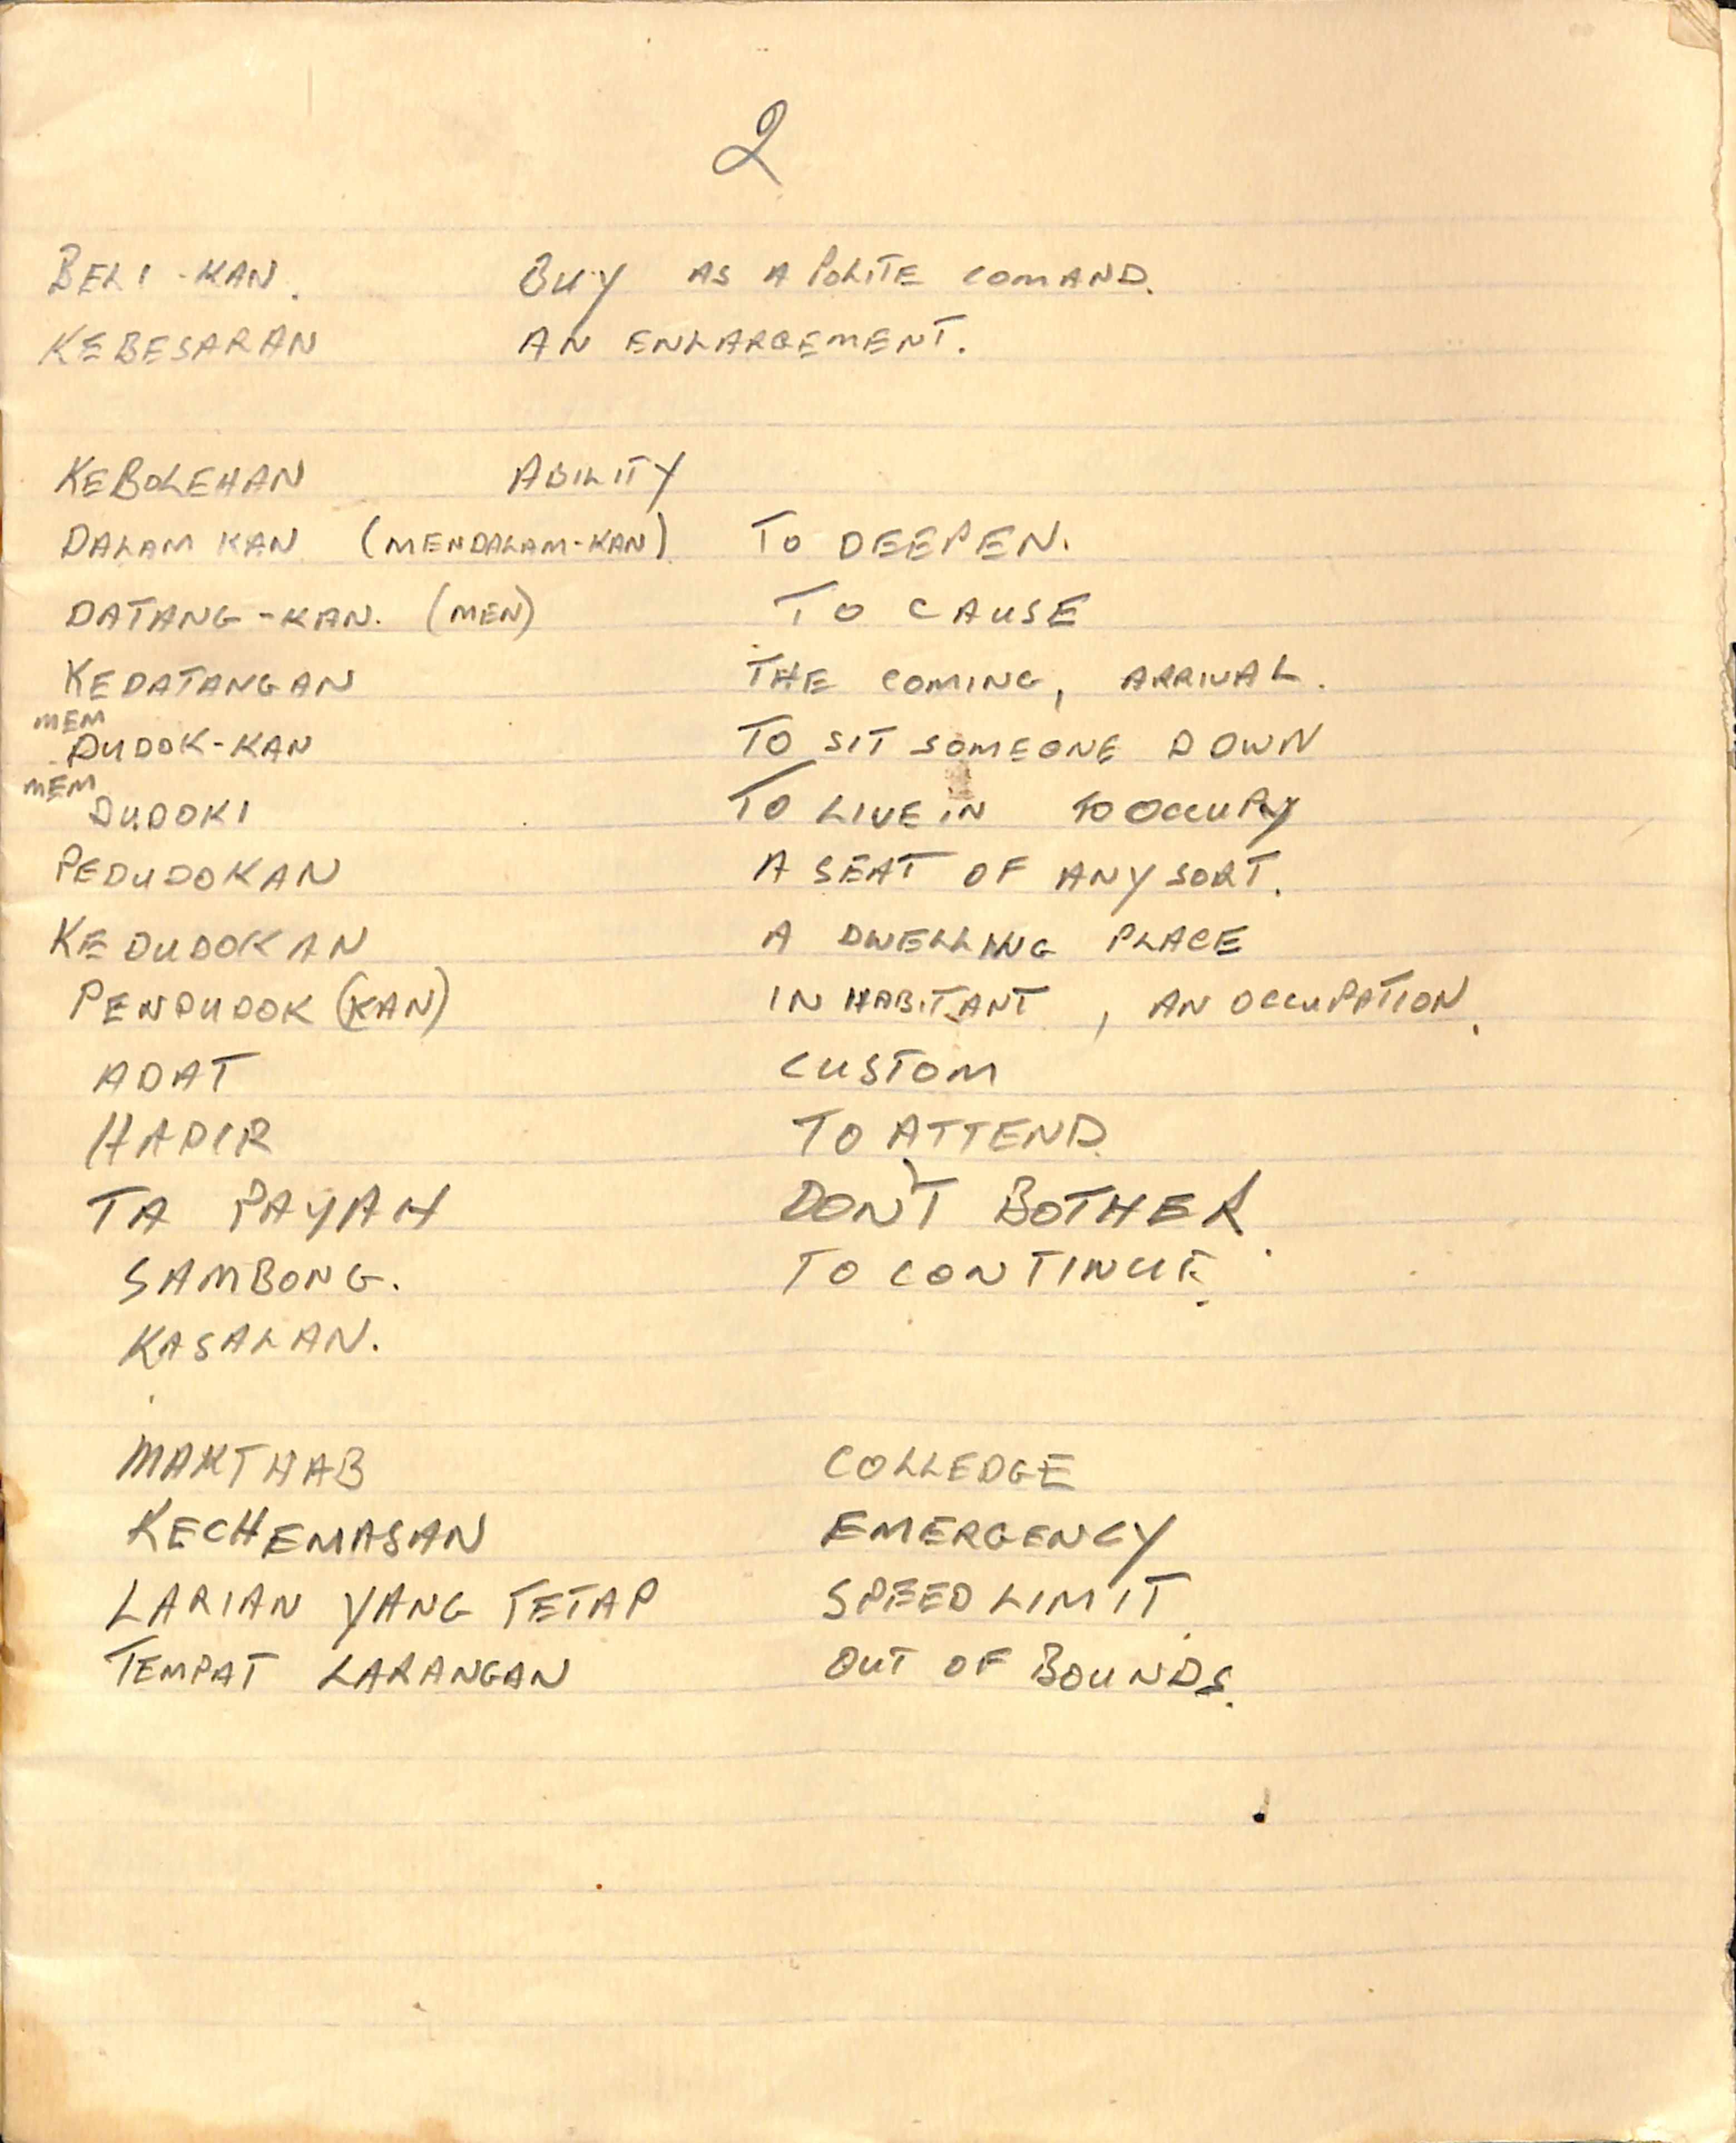 2
BELI-KAN. BUY AS A POLITE COMAND.
KEBESARAN AN ENLARGEMENT.
KEBOLEHAN ABILITY
DALAM KAN (MENDALAM-KAN) TO DEEPEN.
DATANG-KAN. (MEN) TO CAUSE
KEDATANGAN THE COMING, ARRIVAL.
MEM
DUDOK-KAN TO SIT SOMEONE DOWN
MEM
DUDOKI TO LIVE IN TO OCCUPY
PEDUDOKAN A SEAT OF ANY SORT.
KEDUDOKAN A DWELLING PLACE
PENDUDOK (KAN) INHABITANT, AN OCCUPATION.
ADAT CUSTOM
HADIR TO ATTEND
TA PAYAH DON'T BOTHER.
SAMBONG. TO CONTINUE.
KASALAN.
MAKTHAB COLLEDGE
KECHEMASAN EMERGENCY
LARIAN YANG TETAP SPEED LIMIT.
TEMPAT LARANGAN OUT OF BOUNDS.